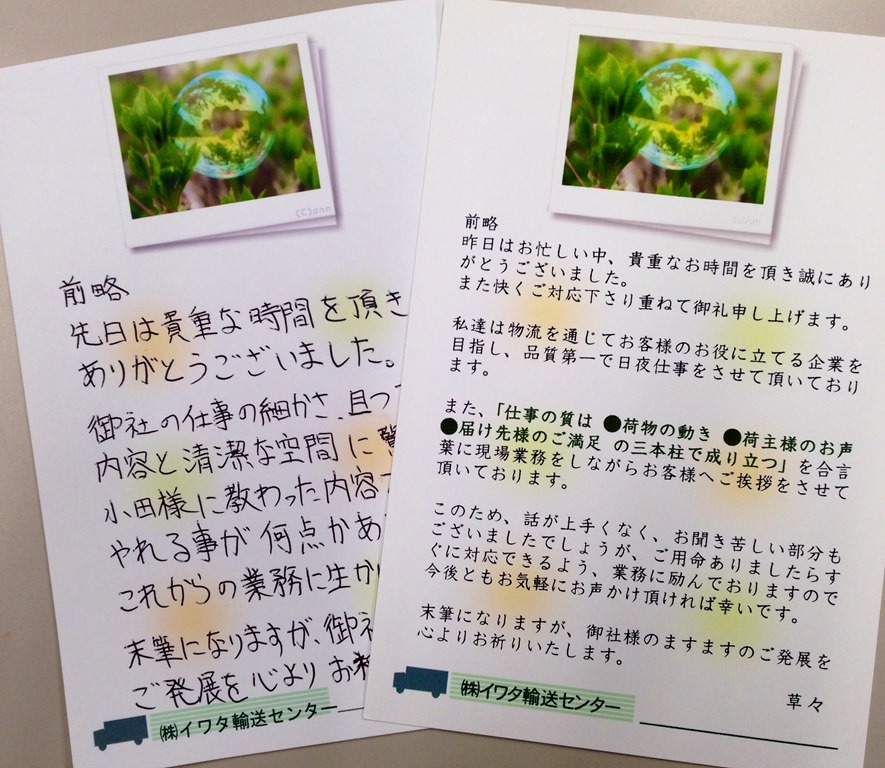 (C)ann
前略
先日は貴重な時間を頂き
ありがとうございました。
御社の仕事の細かさ、且つ
内容と清潔な空間に驚
小田様に教わった内容
やれる事が何点かあ
これからの業務に生か
末筆になりますが、御社
ご発展を心よりお祈
㈱イワタ輸送センター
前略
昨日はお忙しい中、貴重なお時間を頂き誠にあり
がとうございました。
また快くご対応下さり重ねて御礼申し上げます。
私達は物流を通じてお客様のお役に立てる企業を
目指し、品質第一で日夜仕事をさせて頂いており
ます。
また、「仕事の質は ●荷物の動き ●荷主様のお声
●届け先様のご満足 の三本柱で成り立つ」を合言
葉に現場業務をしながらお客様へご挨拶をさせて
頂いております。
このため、話が上手くなく、お聞き苦しい部分も
ございましたでしょうが、ご用命ありましたらす
ぐに対応できるよう、業務に励んでおりますので
今後ともお気軽にお声かけ頂ければ幸いです。
末筆になりますが、御社様のますますのご発展を
心よりお祈りいたします。
草々
㈱イワタ輸送センター